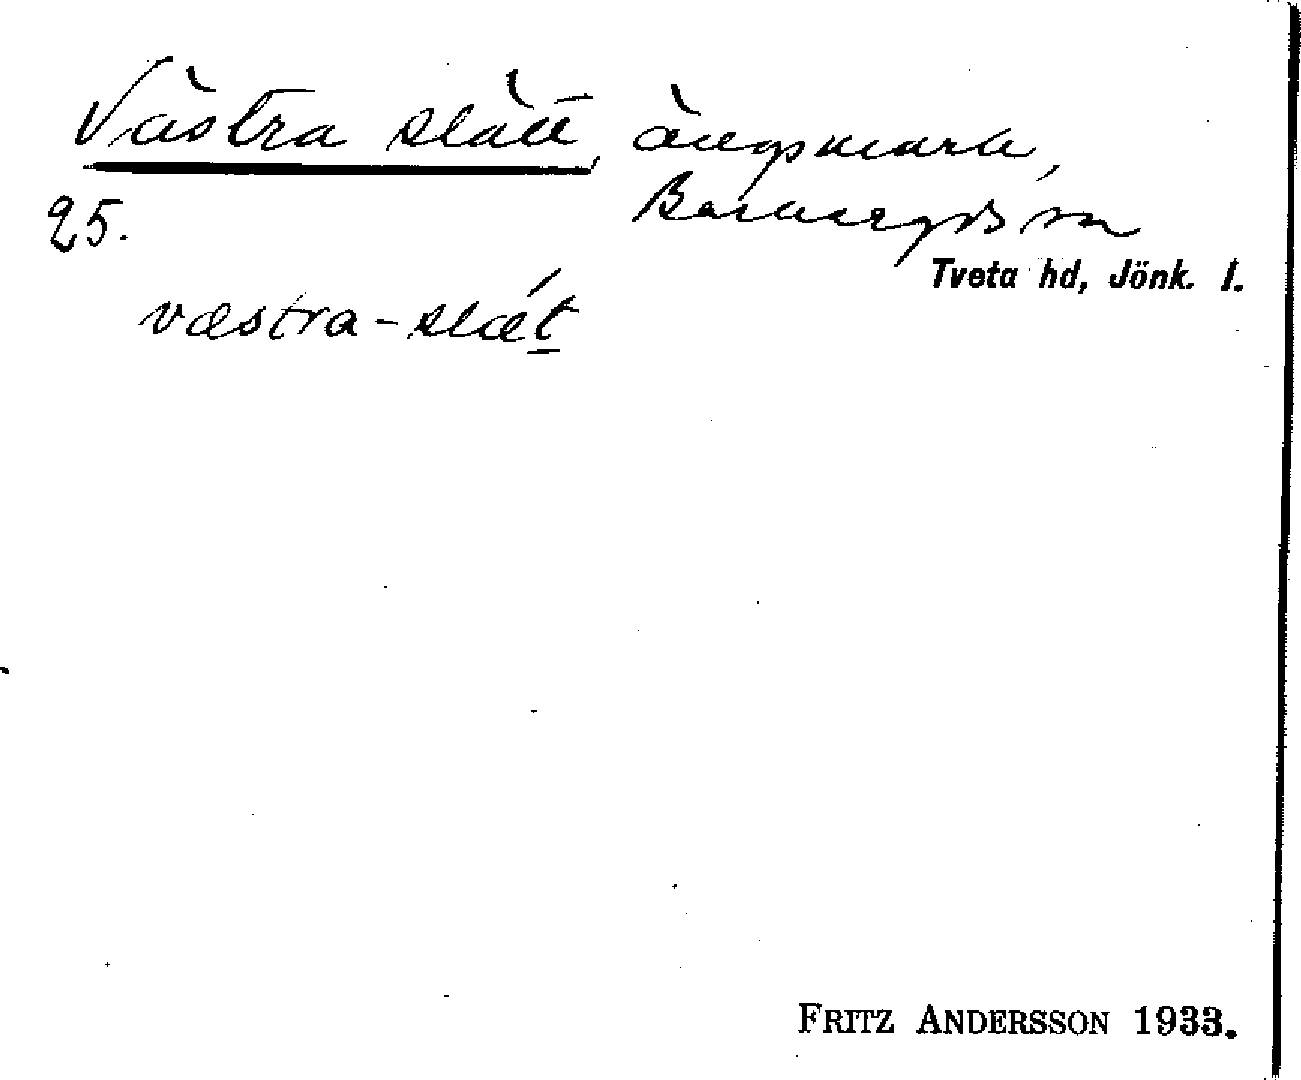 Västra slätt, ängsmark,
25. Barnarps sn
Tveta hd, Jönk. l.
væstra-slǽt
FRITZ ANDERSSON 1933.